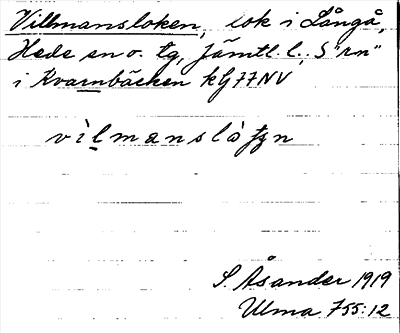 Villmansloken, lok i Långå,
Hede sn o. tg, Jämtl. l., S "rn"
i Kvarnbäcken kg 77NV
S. Åsander 1919
Ulma 755:12